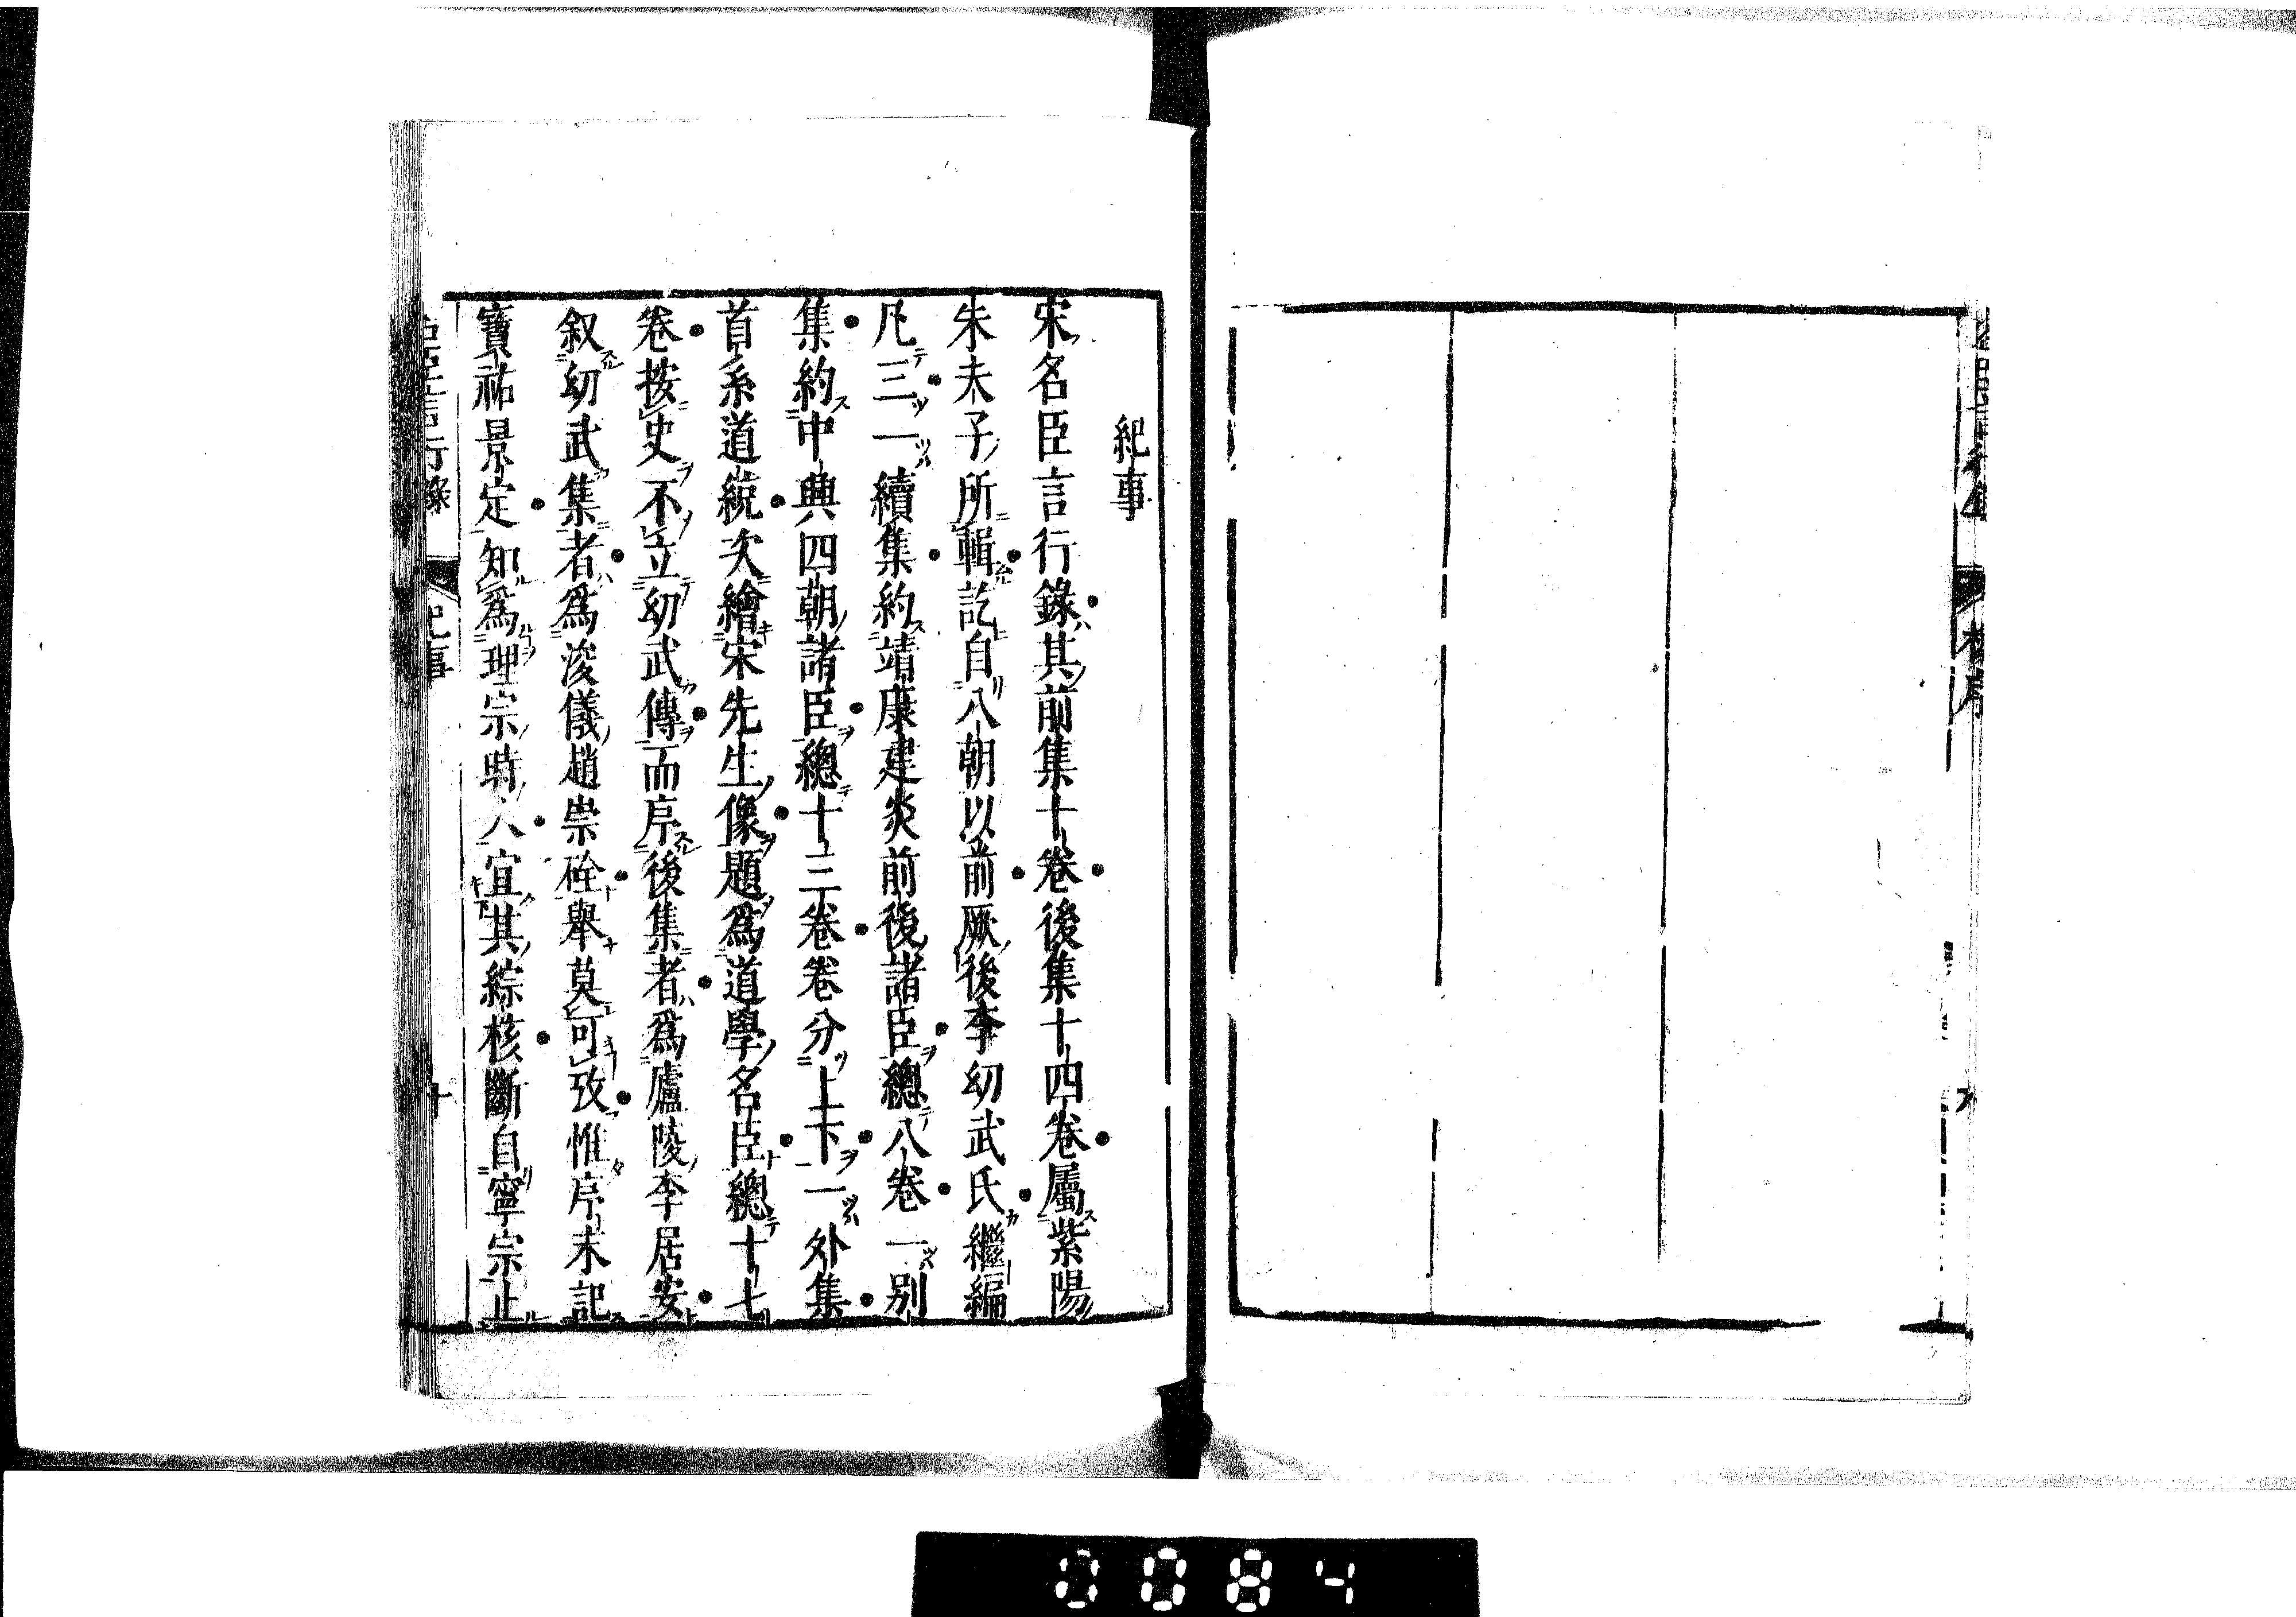 紀事
宋名臣言行錄其前集十卷後集十四卷屬紫陽
朱夫子所輯訖自八朝以前厥後李幼武氏繼編
凡三一續集約靖康建炎前後諸臣總八卷一别
集約中興四朝諸臣總十三卷卷分上下一外集
首系道統次繪宋先生像題爲道學名臣總十七
卷按史不立幼武傳而序後集者爲廬陵李居安
叙幼武集者爲浚儀趙崇硂舉莫可攷惟序末記
寶祐景定知爲理宗時人宜其綜核斷自寧宗止
名臣言行錄
紀事
十
0084